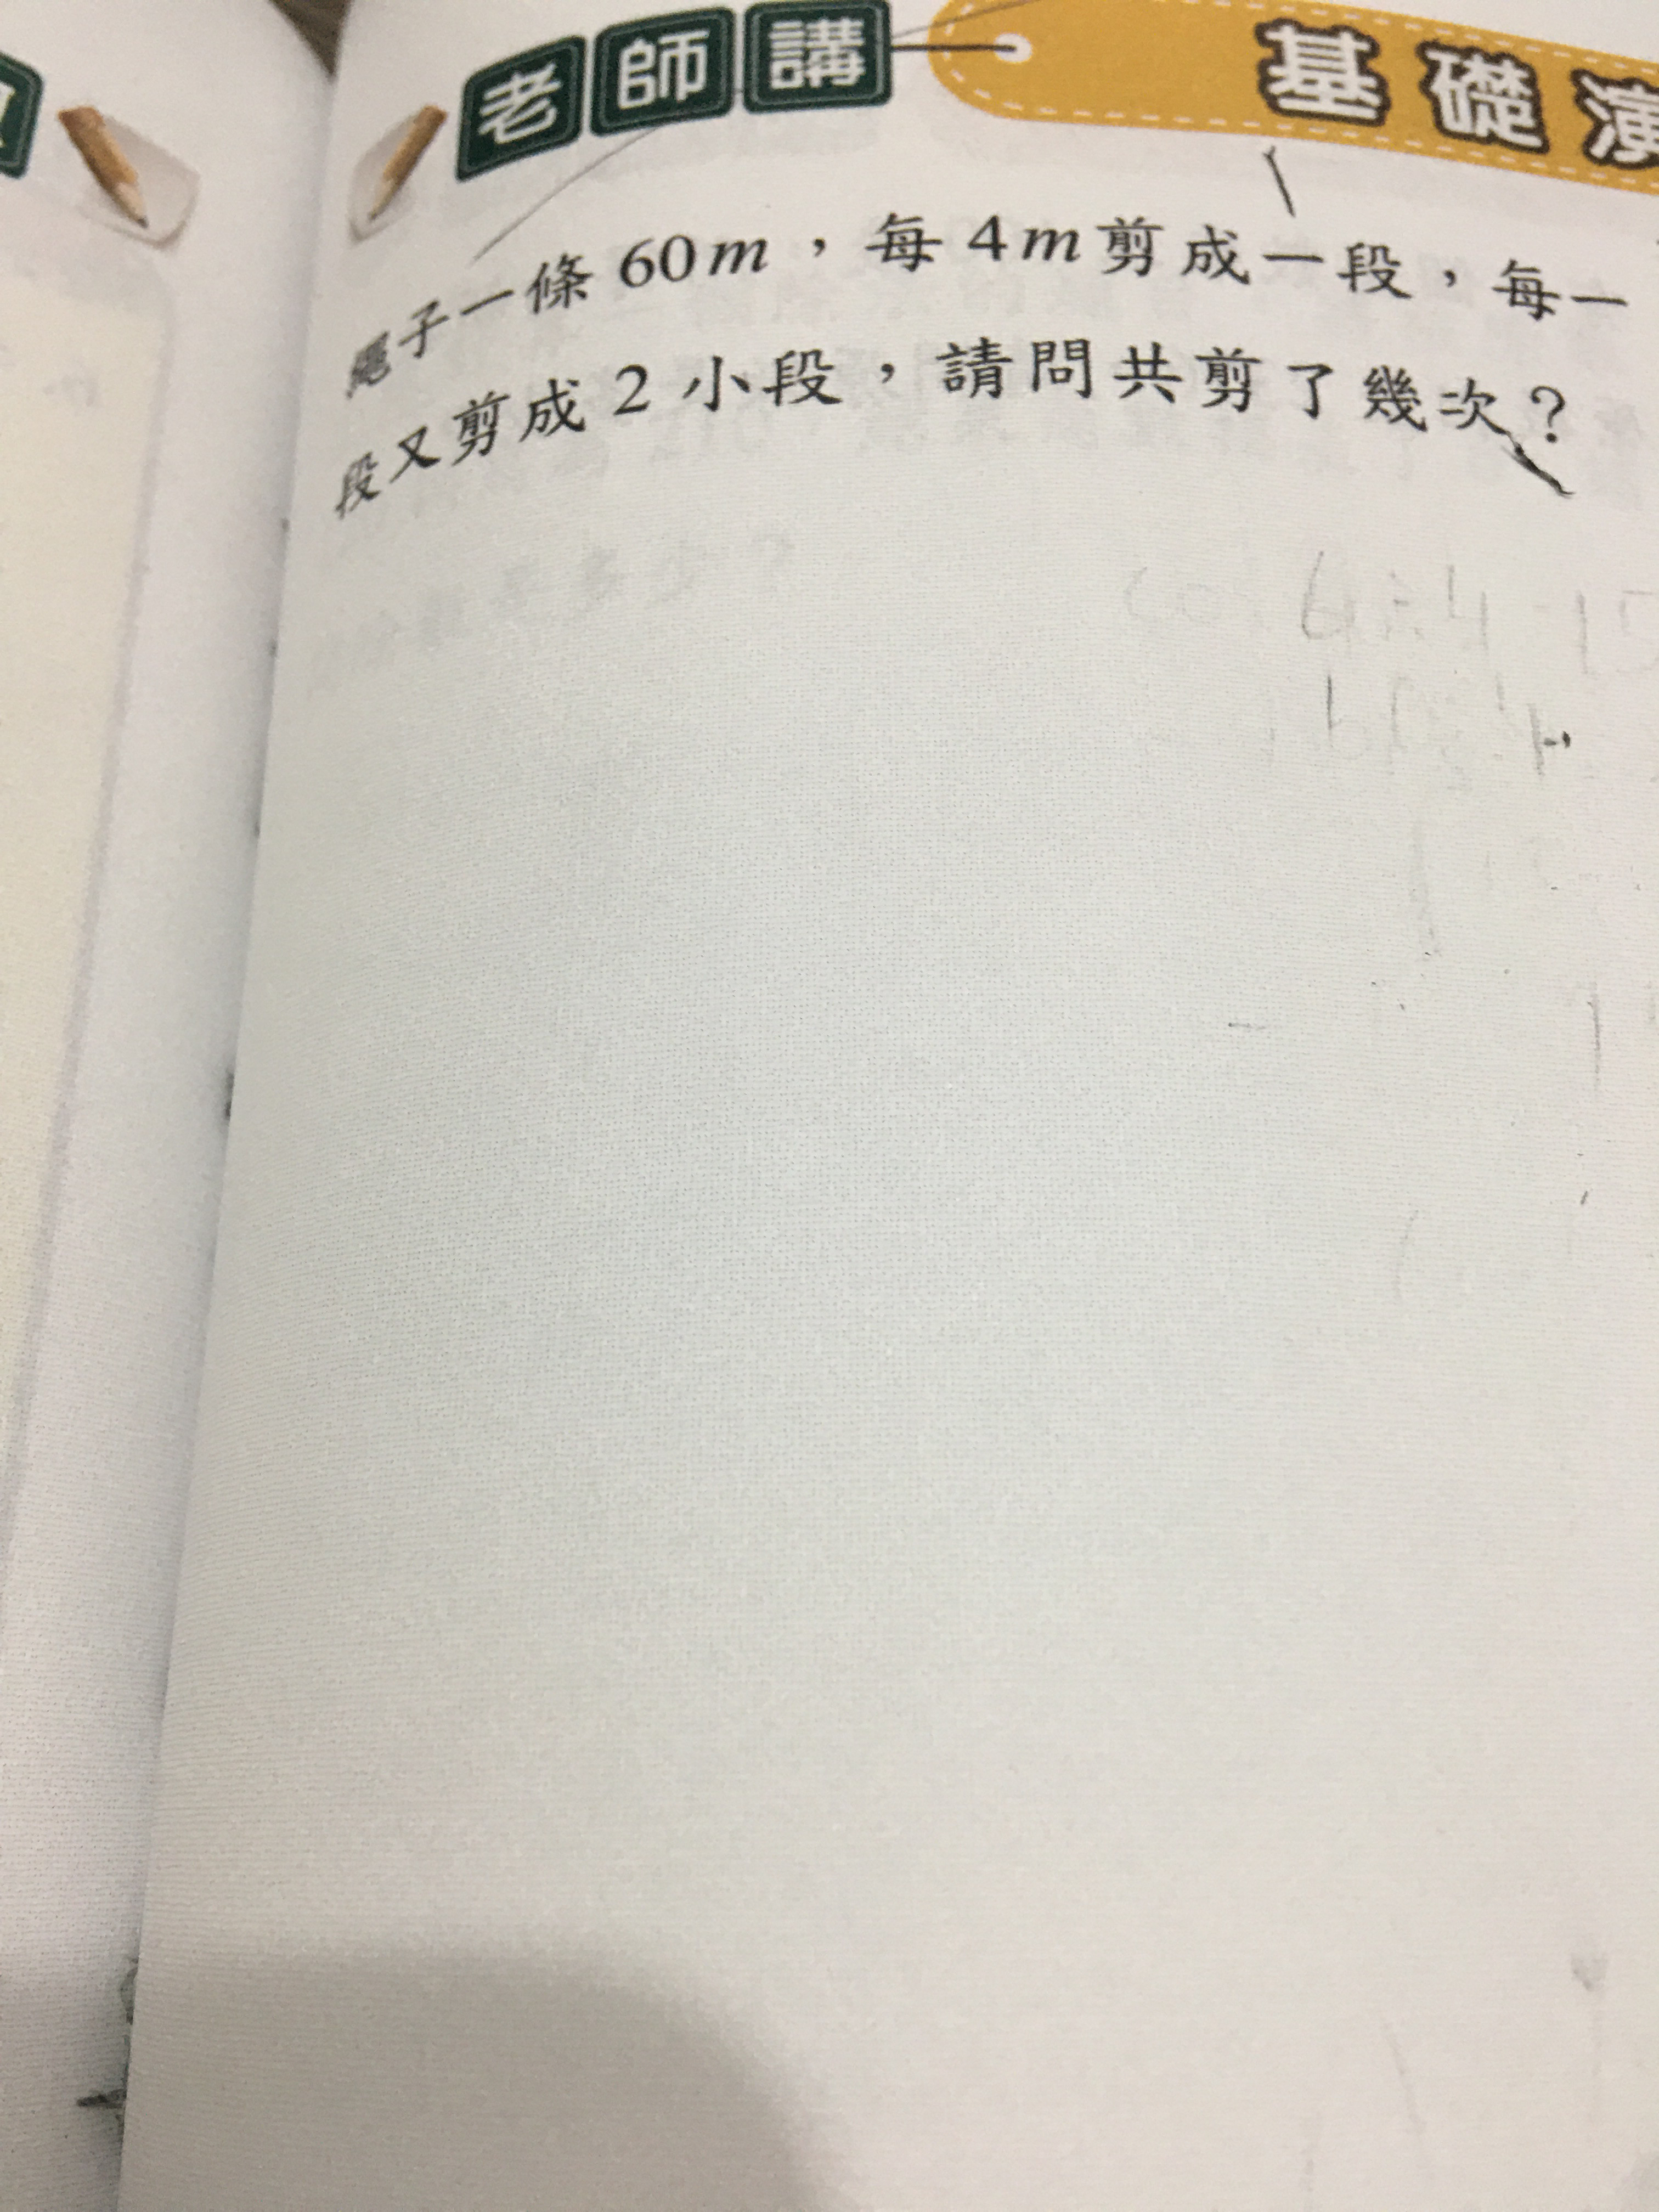 老師講
基礎演
繩子一條60m，每4m剪成一段，每一
段又剪成2小段，請問共剪了幾次？